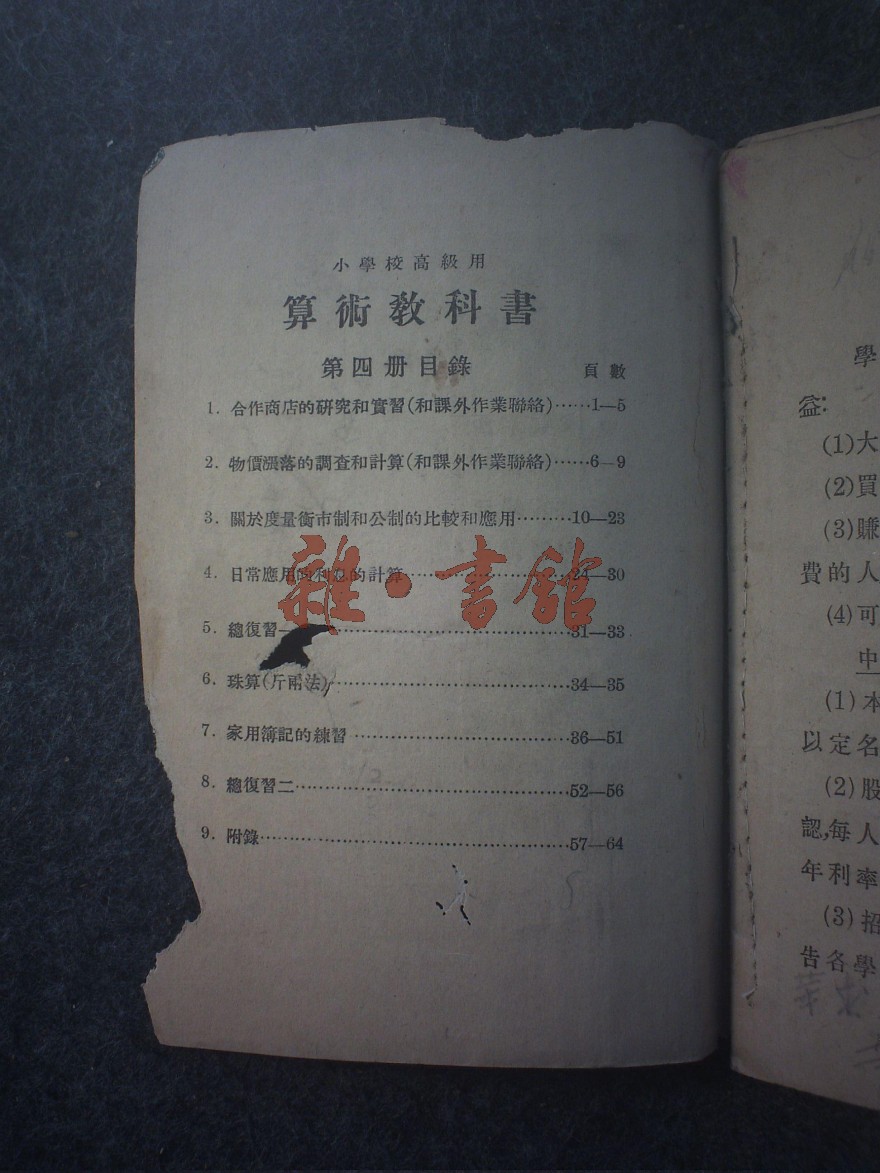 小學校高級用
算術教科書
第四册目錄 頁數
1. 合作商店的研究和實習(和課外作業聯絡)……1—5
2. 物價漲落的調查和計算(和課外作業聯絡)……6—9
3. 關於度量衡市制和公制的比較和應用………10—23
4. 日常應用的利息的計算……24—30
5. 總復習一……31—33
6. 珠算(斤兩法)……34—35
7. 家用簿記的練習……36—51
8. 總復習二……52—56
9. 附錄……57—64
雜·書館
學
益:
(1)大
(2)買
(3)賺
費的人
(4)可
中
(1)本
以定名
(2)股
認,每人
年利率
(3)招
告各學